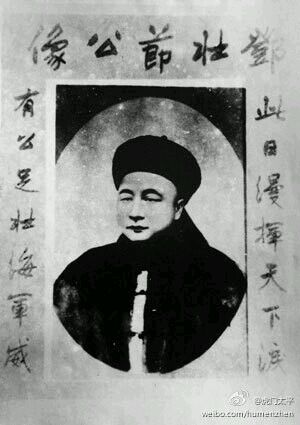 鄧壯節公像
此日漫揮天下淚
有公足壯海軍威
@虎门太平
weibo.com/humenzhen